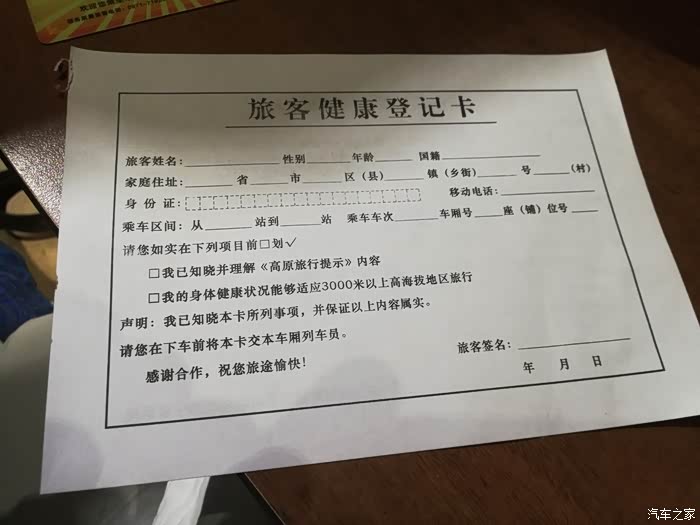 旅客健康登记卡
旅客姓名：________ 性别____年龄____ 国籍________
家庭住址：____省____市____区（县）____镇（乡街）____号____（村）
身份证：□□□□□□□□□□□□□□□□□□ 移动电话：________
乘车区间：从____站到____站 乘车车次____车厢号____座（铺）位号____
请您如实在下列项目前□划✓
□我已知晓并理解《高原旅行提示》内容
□我的身体健康状况能够适应3000米以上高海拔地区旅行
声明：我已知晓本卡所列事项，并保证以上内容属实。
请您在下车前将本卡交本车厢列车员。
旅客签名：________
感谢合作，祝您旅途愉快！
年 月 日
汽车之家